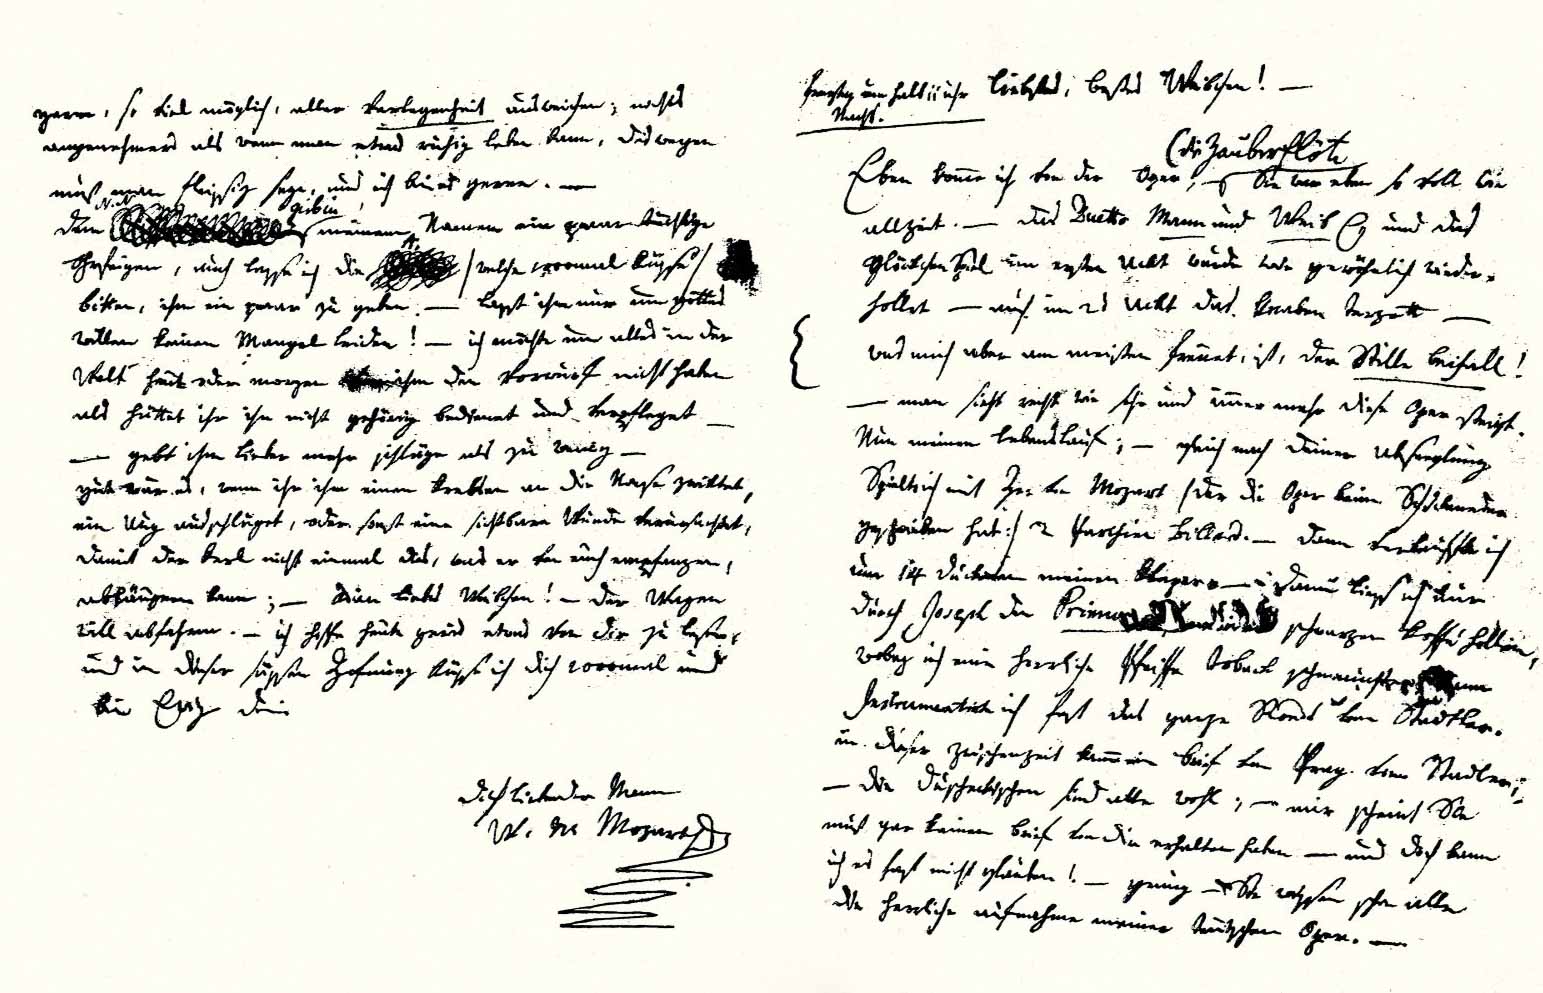 gerne, so viel möglich, aller verlegenheit ausweichen; nichts
angenehmers als wenn man etwas ruhig leben kann, deswegen
muß man fleissig seyn, und ich bin es gerne. —
dem N.N. gieb in meinem Namen ein paar tüchtige
Ohrfeigen, auch lasse ich die A. /welche 1000mal küsse/
bitten, ihm ein paar zu geben. — lasst ihm nur um gottes
willen keinen Mangel leiden! — ich möchte um alles in der
Welt heute oder morgen von ihm den Vorwurf nicht haben
als hättet ihr ihn nicht gehörig bedienet und verpfleget —
— gebt ihm lieber mehr schläge als zu wenig —
gut wär es, wenn ihr ihm einen krebsen an die Nase zwicktet,
ein Aug ausschlüget, oder sonst eine sichtbare Wunde verursachtet,
damit der kerl nicht einmal das, was er von euch empfangen,
abläugnen kann; — Adieu liebes Weibchen! — der Wagen
will abfahren. — ich hoffe heute gewis etwas von dir zu lesen,
und in dieser süssen Hofnung küsse ich dich 1000mal und
bin Ewig dein
dich liebender Mann
W. A. Mozart
Freytag um halb 11 uhr Nachts. liebstes, bestes Weibchen! —
(die Zauberflöte
Eben komme ich von der Oper; — Sie war eben so voll wie
allzeit. — das Duetto Mann und Weib etc: und das
Glöckchen Spiel im ersten Ackt wurde wie gewöhnlich wieder-
hollet — auch im 2t Ackt das knaben Terzett —
was mich aber am meisten freuet, ist, der Stille beifall!
— man sieht recht wie sehr und immer mehr diese Oper steigt.
Nun meinen lebenslauf; — gleich nach Deiner Abseeglung
Spielte ich mit Hr: von Mozart /:der die Oper beim Schickaneder
geschrieben hat:/ 2 Parthien Billard. — dann verkauffte ich
um 14 duckaten meinen kleper. — dann liess ich mir
durch Joseph den Primus rufen und schwarzen koffé hollen,
wobey ich eine herrliche Pfeiffe toback schmauchte; dann
Instrumentirte ich fast das ganze Rondó vom Stadtler.
in dieser zwischenzeit kamm ein brief von Prag vom Stadler;
— die Duscheckischen sind alle wohl; — mir scheint Sie
muß gar keinen brief von dir erhalten haben — und doch kann
ich es fast nicht glauben! — genug — Sie wissen schon alle
die herrliche aufnahme meiner teutschen Oper. —